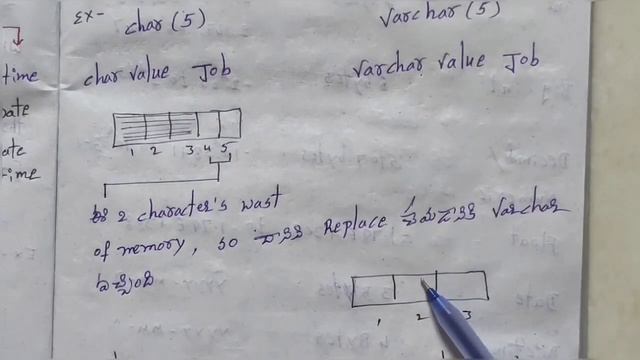 Ex- char (5) Varchar (5)
time char value Job Varchar value Job
ate
ate 1 2 3 4 5
time
2 character's wast
of memory, so దానికి Replace Varchar
వచ్చింది
1 2 3